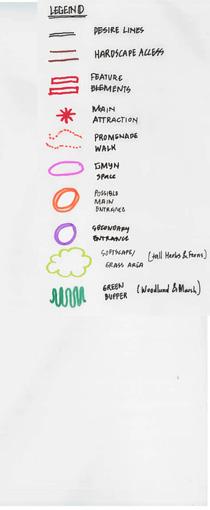 LEGEND
DESIRE LINES
HARDSCAPE ACCESS
FEATURE
ELEMENTS
MAIN
ATTRACTION
PROMENADE
WALK
SPACE
POSSIBLE
MAIN
ENTRANCE
SECONDARY
ENTRANCE
SOFTSCAPE/ (tall Herbs & Ferns)
GRASS AREA
GREEN (Woodland & Marsh)
BUFFER